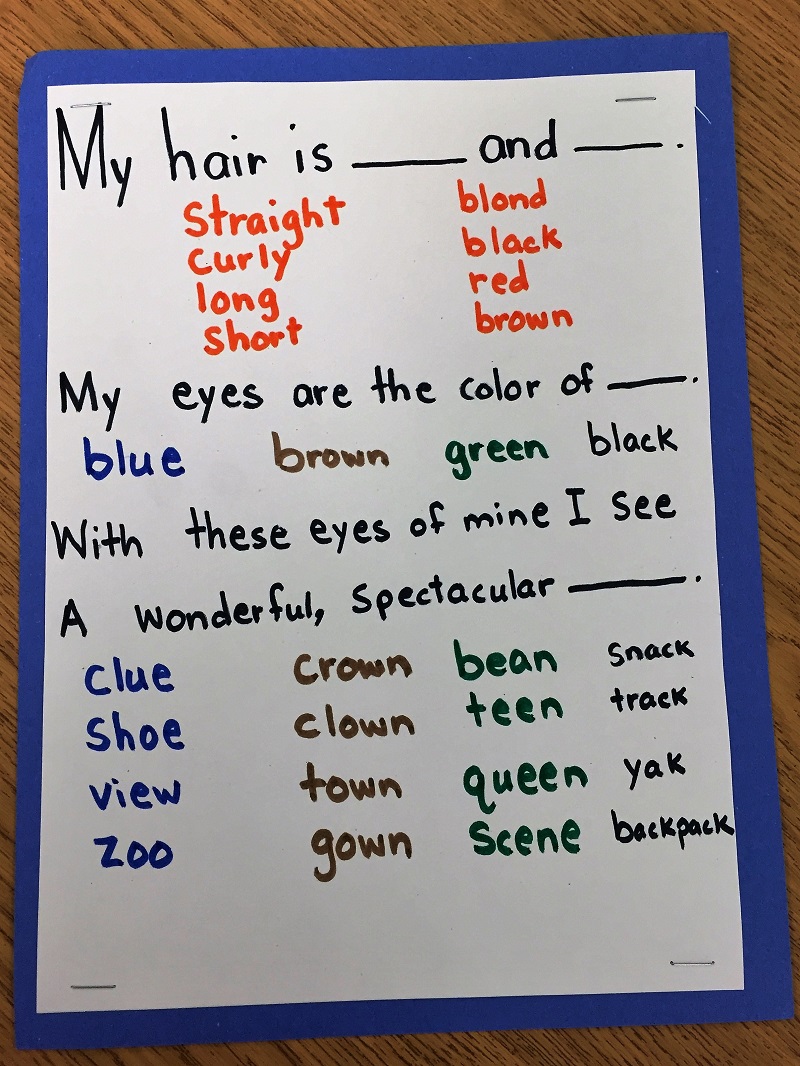 My hair is ____ and ____.
Straight blond
Curly black
long red
Short brown
My eyes are the color of ____.
blue brown green black
With these eyes of mine I see
A wonderful, spectacular ____.
clue crown bean snack
Shoe clown teen track
view town queen yak
zoo gown scene backpack